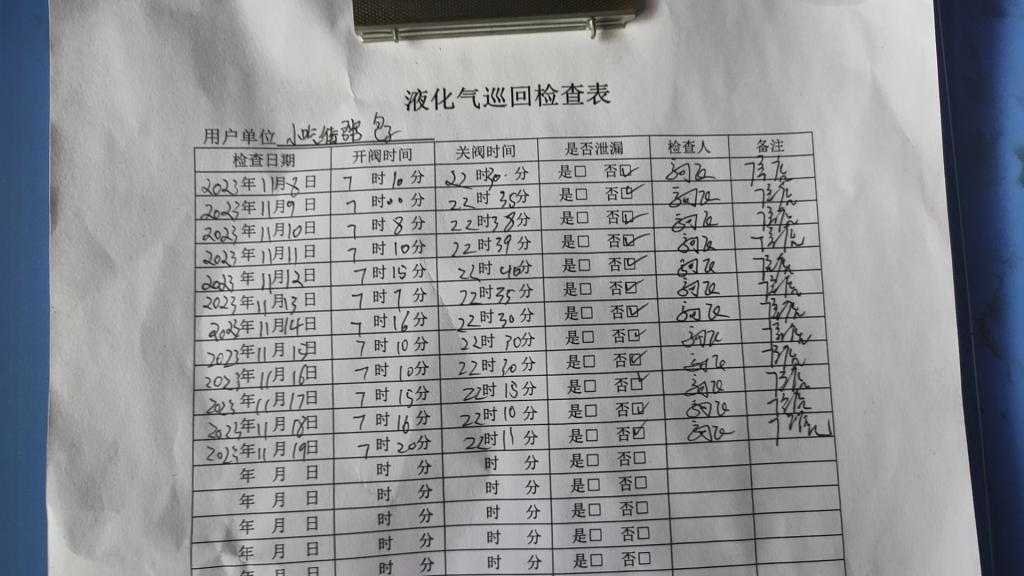 液化气巡回检查表
用户单位
检查日期 开阀时间 关阀时间 是否泄漏 检查人 备注
2023年11月8日 7时10分 22时30分 是□ 否☑
2023年11月9日 7时00分 22时35分 是□ 否☑
2023年11月10日 7时8分 22时38分 是□ 否☑
2023年11月11日 7时10分 22时39分 是□ 否☑
2023年11月12日 7时15分 22时40分 是□ 否☑
2023年11月13日 7时7分 22时35分 是□ 否☑
2023年11月14日 7时16分 22时30分 是□ 否☑
2023年11月15日 7时10分 22时30分 是□ 否☑
2023年11月16日 7时10分 22时30分 是□ 否☑
2023年11月17日 7时15分 22时15分 是□ 否☑
2023年11月18日 7时16分 22时10分 是□ 否☑
2023年11月19日 7时20分 22时11分 是□ 否☑
年 月 日 时 分 时 分 是□ 否□
年 月 日 时 分 时 分 是□ 否□
年 月 日 时 分 时 分 是□ 否□
年 月 日 时 分 时 分 是□ 否□
年 月 日 时 分 时 分 是□ 否□